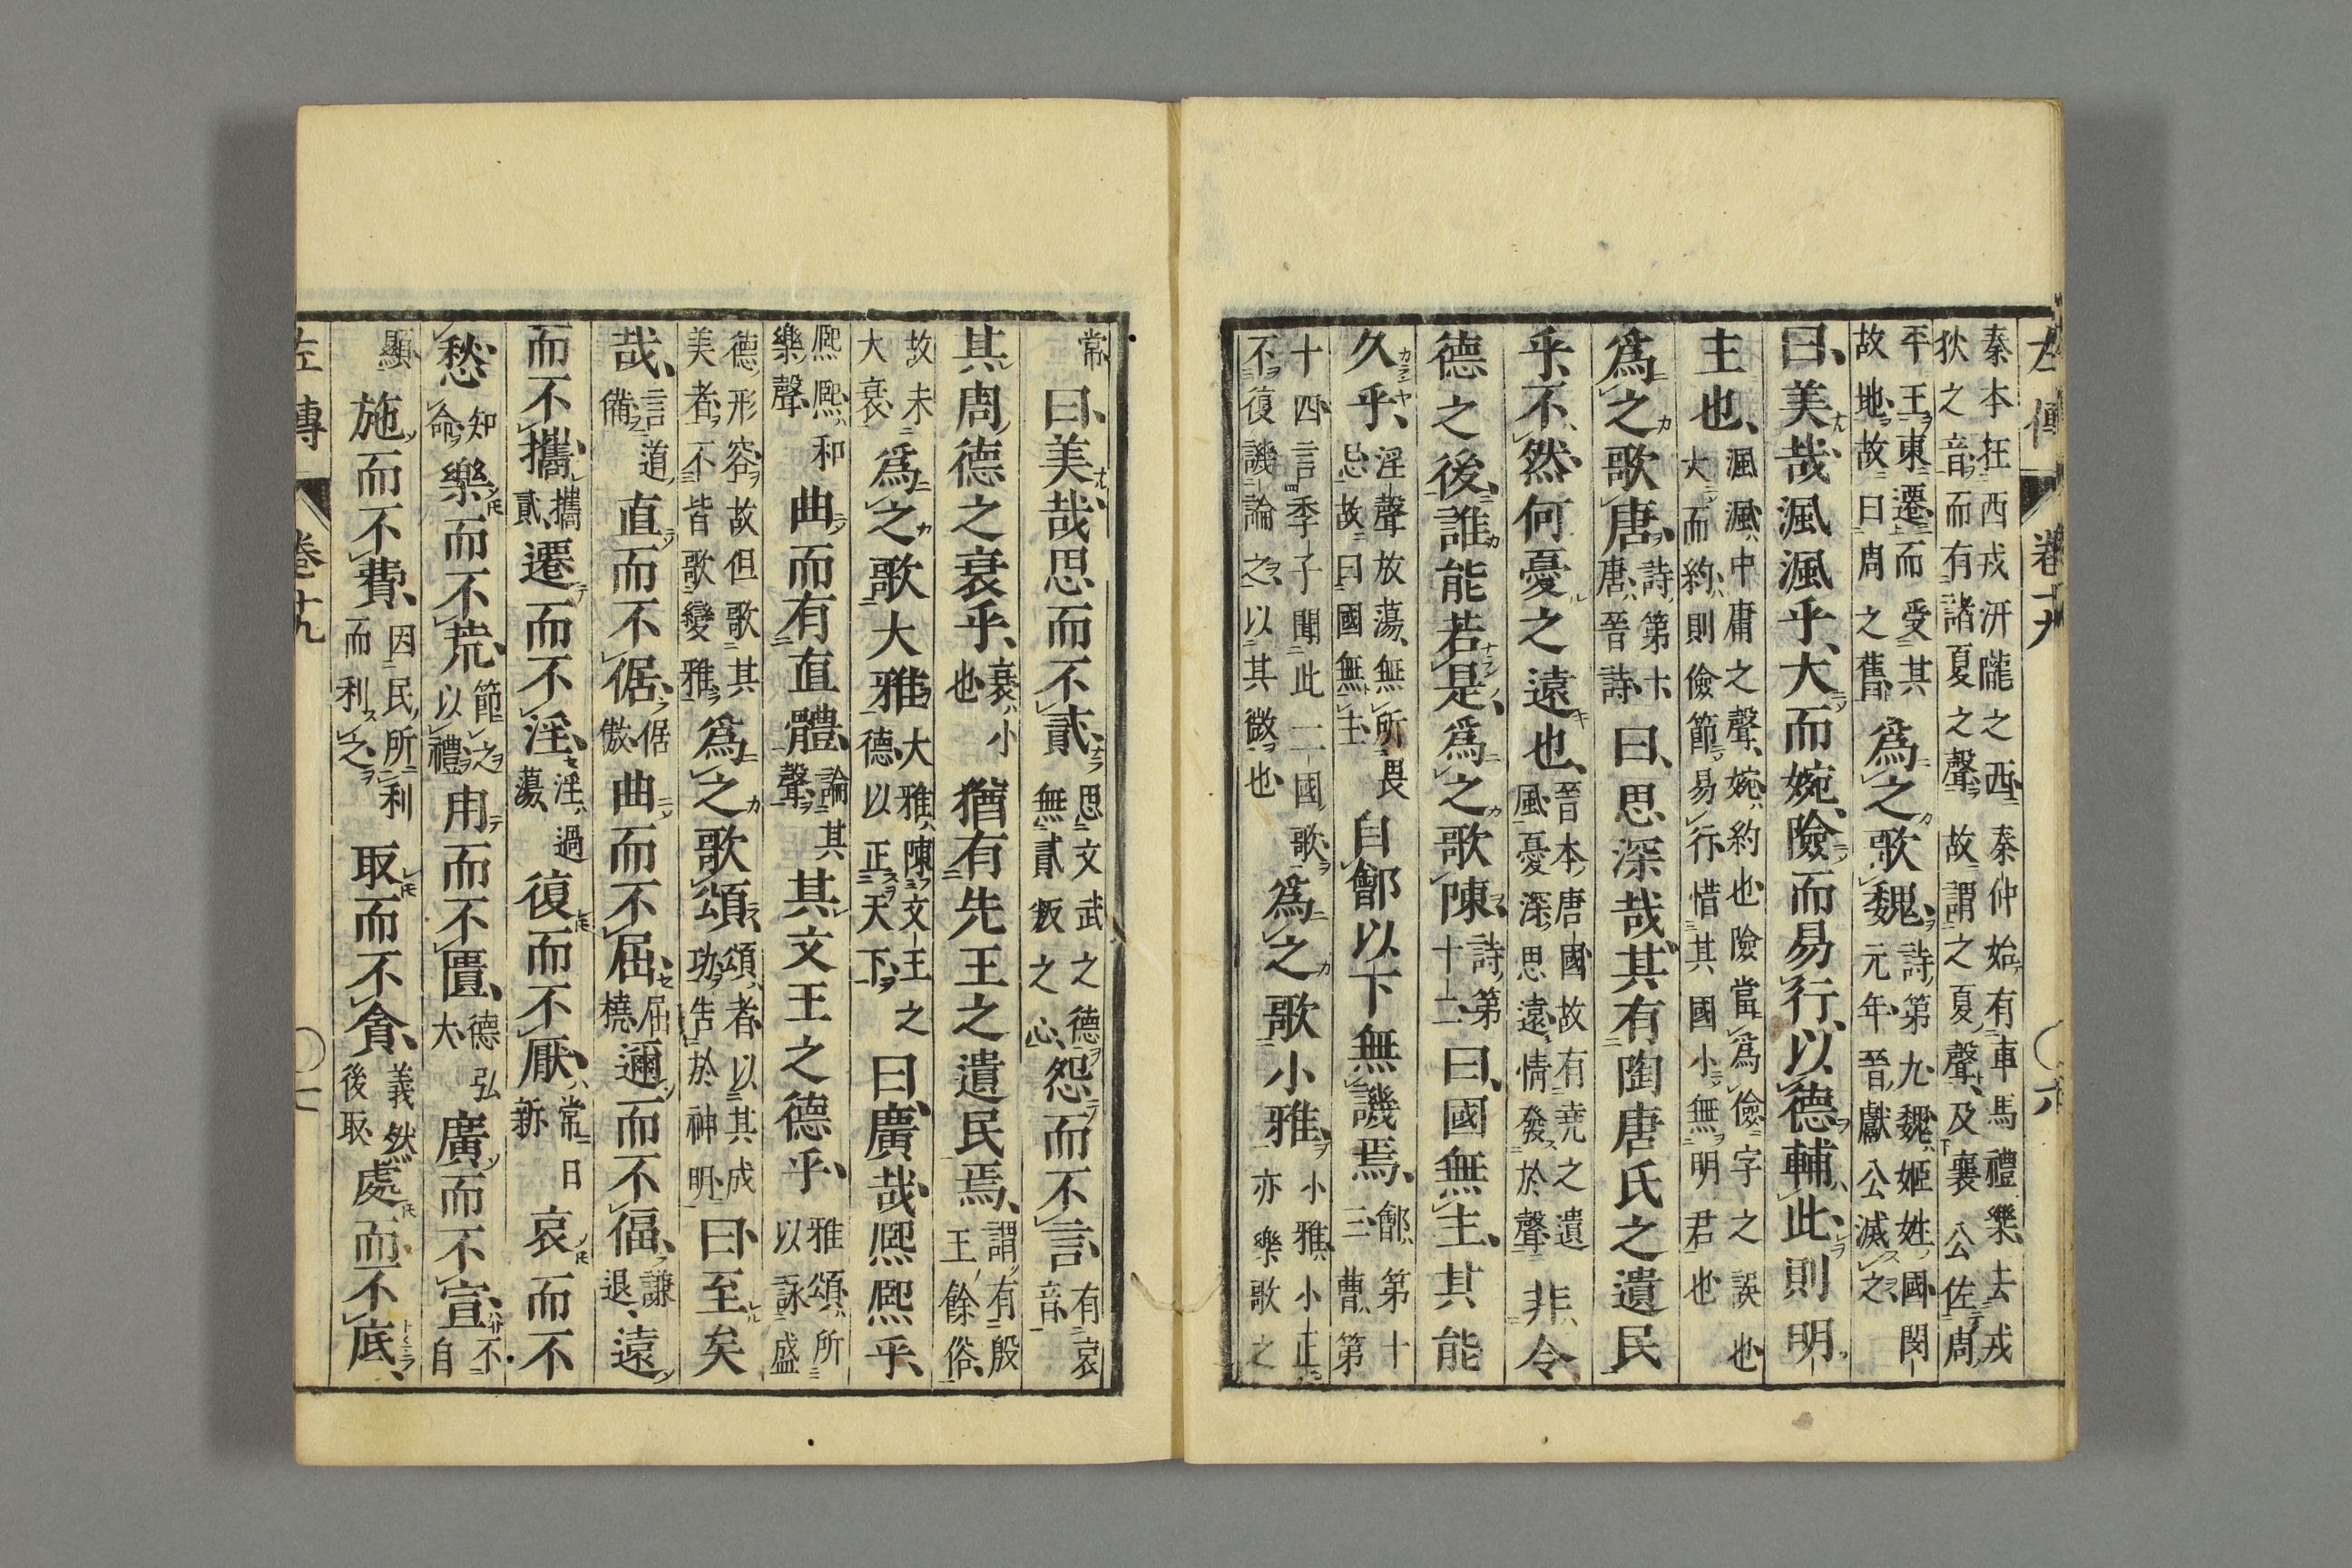 左傳 卷十九 六
秦本在西戎汧隴之西秦仲始有車馬禮樂去戎
狄之音而有諸夏之聲故謂之夏聲及襄公佐周
平王東遷而受其
故地故曰周之舊
爲之歌魏
詩第九魏姬姓國閔
元年晉獻公滅之
曰美哉渢渢乎大而婉險而易行以德輔此則明
主也
渢渢中庸之聲婉約也險當爲儉字之誤也
大而約則儉節易行惜其國小無明君也
爲之歌唐
詩第十
唐晉詩
曰思深哉其有陶唐氏之遺民
乎不然何憂之遠也
晉本唐國故有堯之遺
風憂深思遠情發於聲
非令
德之後誰能若是爲之歌陳
詩第
十二
曰國無主其能
久乎
淫聲放蕩無所畏
忌故曰國無主
自鄶以下無譏焉
鄶第十
三曹第
十四言季子聞此二國歌
不復譏論之以其微也
爲之歌小雅
小雅小正
亦樂歌之
常
曰美哉思而不貳
思文武之德
無貳叛之心
怨而不言
有哀
音
其周德之衰乎
衰小
也
猶有先王之遺民焉
謂有殷
王餘俗
故未
大衰
爲之歌大雅
大雅陳文王之
德以正天下
曰廣哉熙熙乎
熙熙和
樂聲
曲而有直體
論其
聲
其文王之德乎
雅頌所
以詠盛
德形容故但歌其
美者不皆歌變雅
爲之歌頌
頌者以其成
功告於神明
曰至矣
哉
言道
備
直而不倨
倨
傲
曲而不屈
屈
橈
邇而不偪
謙
退
遠
而不攜
攜
貳
遷而不淫
淫過
蕩
復而不厭
常日
新
哀而不
愁
知
命
樂而不荒
節之
以禮
用而不匱
德弘
大
廣而不宣
不
自
顯
施而不費
因民所利
而利之
取而不貪
義然
後取
處而不底
左傳 卷十九